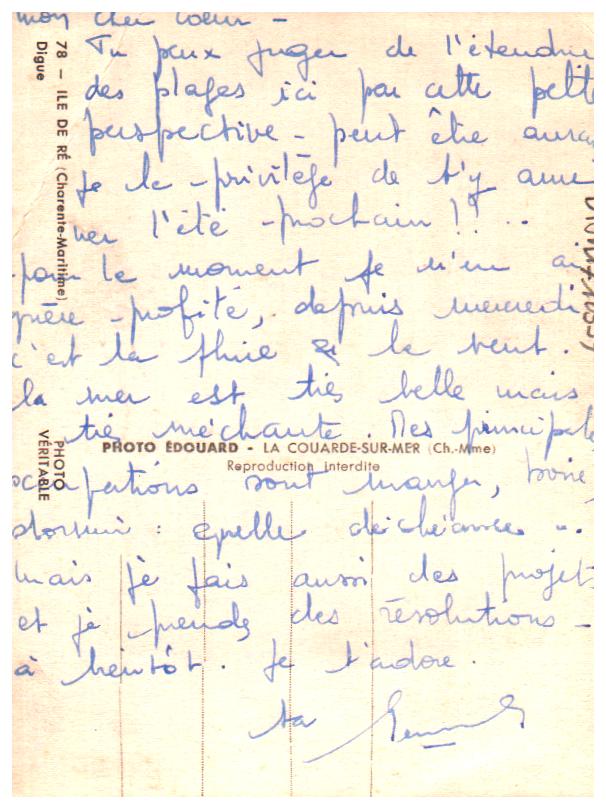 mon cher coeur -
Tu peux juger de l'étendue
des plages ici par cette petite
perspective - peut être aurai
je le privilège de t'y ame
ner l'été prochain !! ..
pour le moment je n'en ai
guère profité, depuis mercredi
c'est la pluie & le vent.
la mer est très belle mais
très méchante. Mes principale
occupations sont manger, boire,
dormir : quelle déchéance ...
mais je fais aussi des projets
et je prends des résolutions -
à bientôt. Je t'adore.
ta
78 - ILE DE RÉ (Charente-Maritime)
Digue
PHOTO ÉDOUARD - LA COUARDE-SUR-MER (Ch.-Mme)
Reproduction interdite
PHOTO
VÉRITABLE